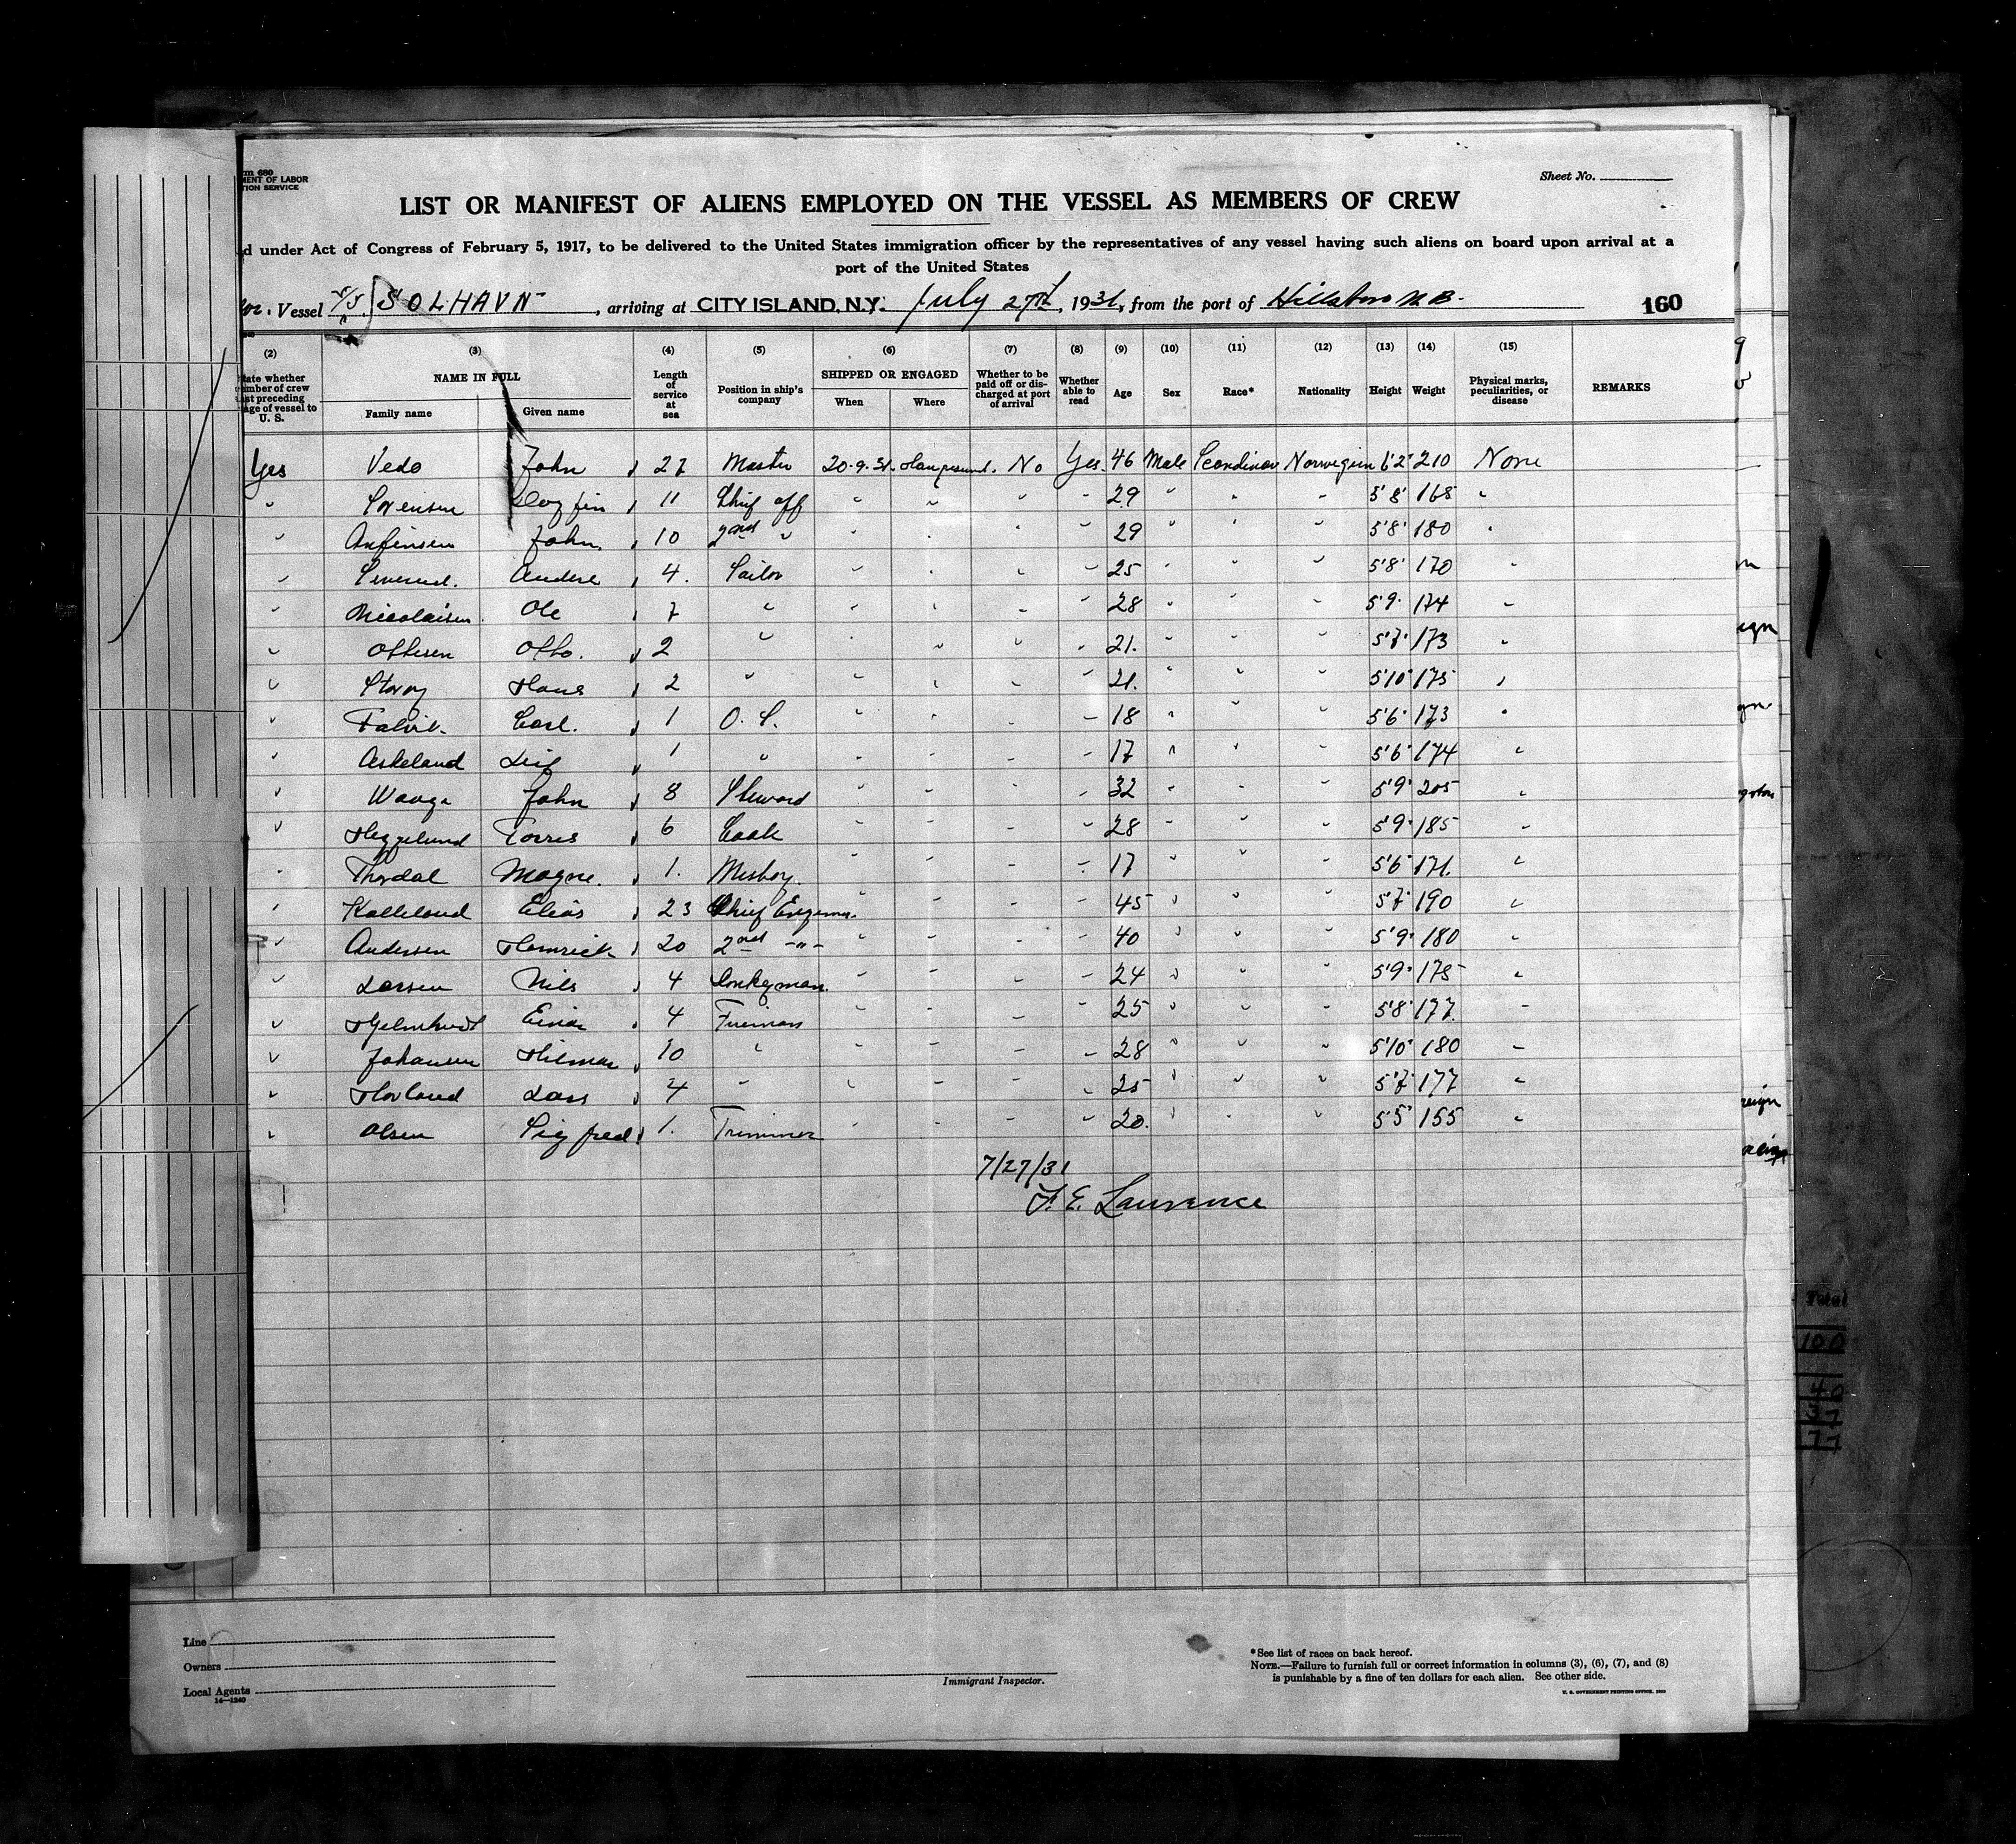 Sheet No.
rm 680
MENT OF LABOR
TION SERVICE
LIST OR MANIFEST OF ALIENS EMPLOYED ON THE VESSEL AS MEMBERS OF CREW
d under Act of Congress of February 5, 1917, to be delivered to the United States immigration officer by the representatives of any vessel having such aliens on board upon arrival at a
port of the United States
Vessel S/S SOLHAVN, arriving at CITY ISLAND, N.Y. July 27th, 1931, from the port of Hillsboro N.B. 160
(2) (3) (4) (5) (6) (7) (8) (9) (10) (11) (12) (13) (14) (15)
tate whether
mber of crew
st preceding
age of vessel to
U. S.
NAME IN FULL
Family name Given name
Length
of
service
at
sea
Position in ship's
company
SHIPPED OR ENGAGED
When Where
Whether to be
paid off or dis-
charged at port
of arrival
Whether
able to
read
Age Sex Race* Nationality Height Weight
Physical marks,
peculiarities, or
disease
REMARKS
Yes Vedo John 27 Master 20-9-31 No Yes 46 Male Scandinav Norwegian 6'2" 210 None
" Sorensen Dagfin 11 Chief off " " " " 29 " " " 5'8" 168 "
" Anfinsen John 10 2nd " " " " " 29 " " " 5'8" 180 "
" Andere 4 Sailor " " " " 25 " " " 5'8" 170 "
" Nicolaisen Ole 7 " " " " " 28 " " " 5'9" 174 "
" Ottesen Otto. 2 " " " " " 21. " " " 5'7" 173 "
" Hans 2 " " " " " 21. " " " 5'10" 175 "
" Carl. 1 O. S. " " " " 18 " " " 5'6" 173 "
" Askeland Leif 1 " " " " " 17 " " " 5'6" 174 "
" Waage John 8 Steward " " " " 32 " " " 5'9" 205 "
" Heggelund Torris 6 Cook " " " " 28 " " " 5'9" 185 "
" Thordal Magne. 1. Messboy. " " " " 17 " " " 5'6" 171. "
" Kalleland Elias 23 Chief Engener. " " " " 45 " " " 5'7" 190 "
" Andersen Henrick 20 2nd -"- " " " " 40 " " " 5'9" 180 "
" Larsen Nils 4 Donkeyman. " " " " 24 " " " 5'9" 175 "
" Einar 4 Fireman " " " " 25 " " " 5'8" 177. "
" Johansen Hilmar 10 " " " " " 28 " " " 5'10" 180 "
" Hovland Lars 4 " " " " " 25 " " " 5'7" 177 "
" Olsen Sigfred 1. Trimmer " " " " 20. " " " 5'5" 155 "
7/27/31
F. E. Lawrence
Total
100
40
37
77
Line
Owners
Local Agents
14—1240
Immigrant Inspector.
*See list of races on back hereof.
NOTE.—Failure to furnish full or correct information in columns (3), (6), (7), and (8)
is punishable by a fine of ten dollars for each alien. See other side.
U. S. GOVERNMENT PRINTING OFFICE